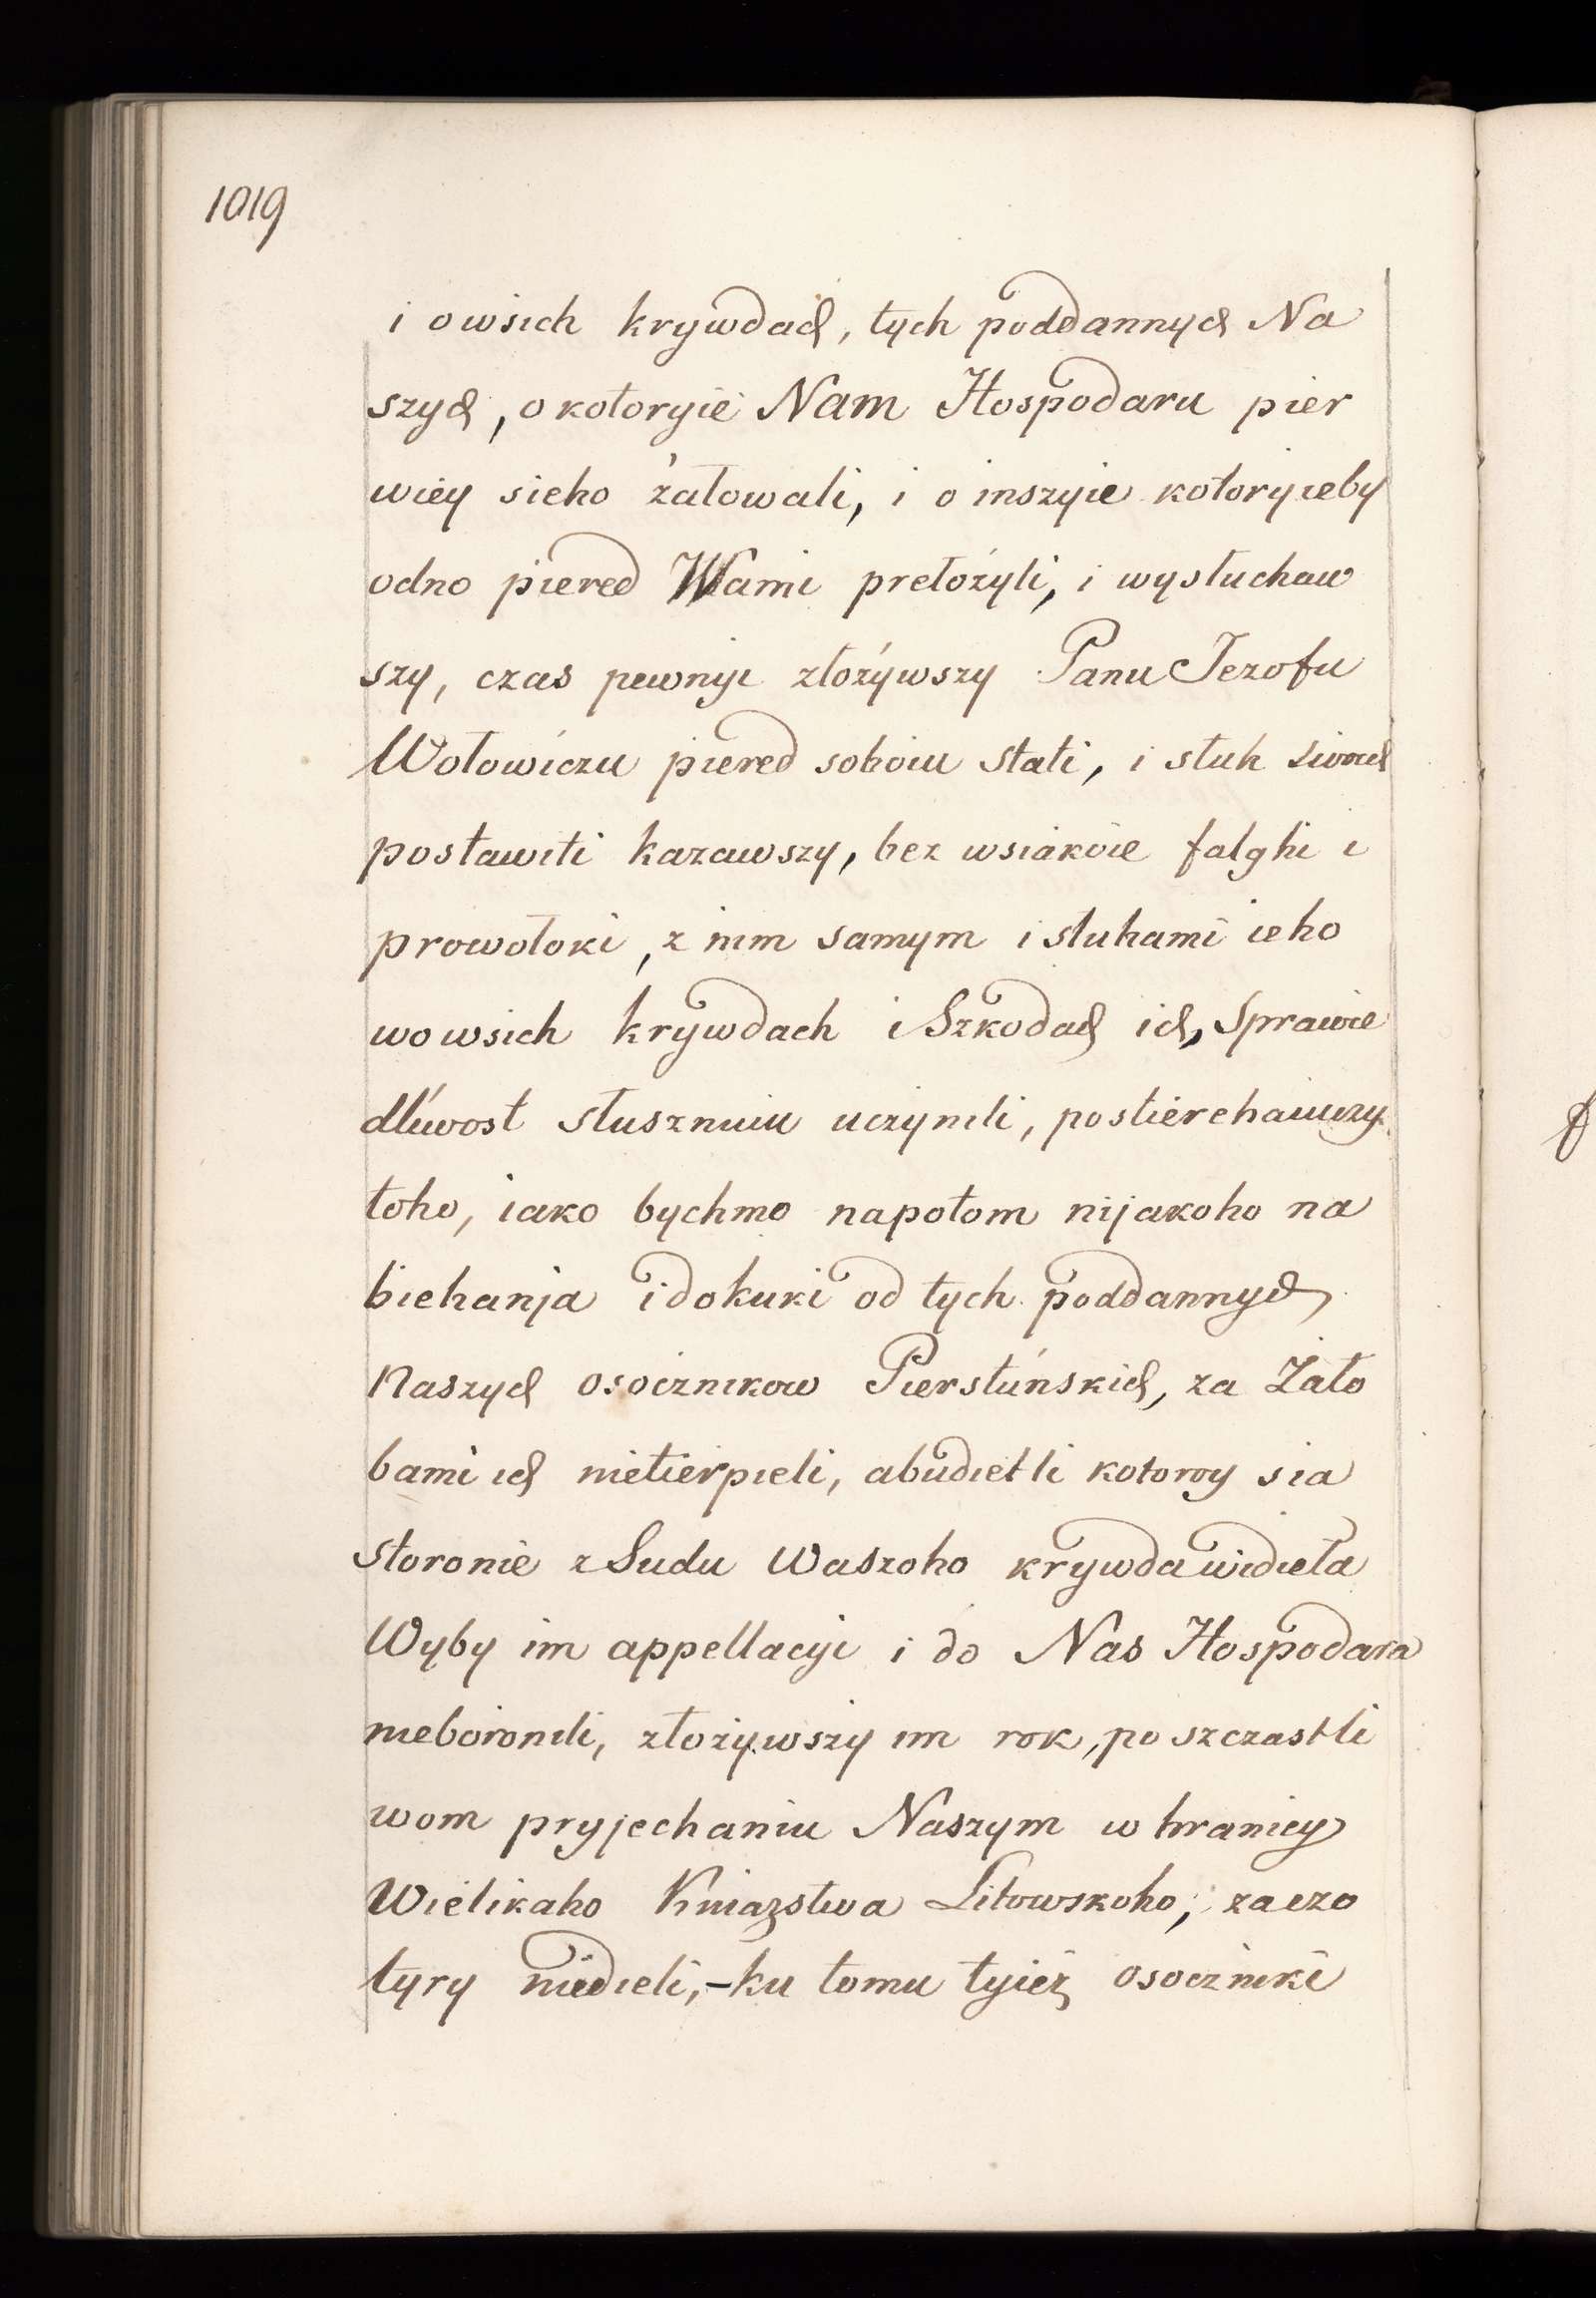 1019
i owsich krywdach, tych poddannych Na
szych, o kotoryie Nam Hospodaru pier
wiey sieho żałowali, i o inszyie kotoryieby
odno piered Wami prełożyli, i wysłuchaw
szy, czas pewnyi złożywszy Panu Jezofu
Wołowiczu piered soboiu stati, i słuh
postawiti kazawszy, bez wsiakoie falghi i
prowołoki, z nim samym i sluhami ieho
wo wsich krywdach i Szkodach ich, Sprawie
dliwost słusznuiu uczynili, postierehaiuczy
toho, iako bychmo napotom nijakoho na
biehanja i dokuki od tych poddannych
Naszych osocznikow Pierstuńskich, za Żało
bami ich nietierpieli, abudietli kotoroy sia
storonie z Sudu Waszoho krywda widieła
Wyby im appellacyi i do Nas Hospodara
nieboronili, złożywszy im rok, po szczastli
wom pryjechaniu Naszym w hranicy
Wielikaho Kniazstwa Litowskoho, za czo
tyry niedieli, – ku tomu tyież osoczniki